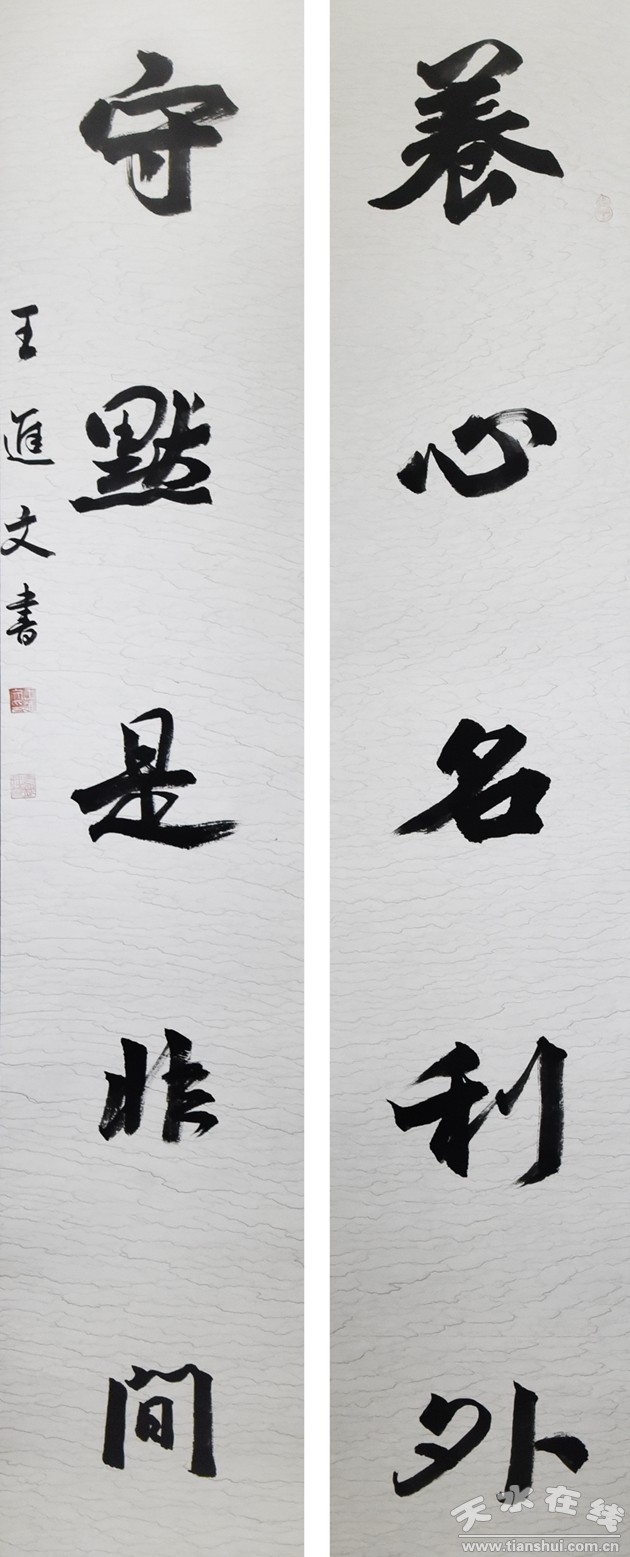 養心名利外
守默是非間
王進文書
天水在线
www.tianshui.com.cn